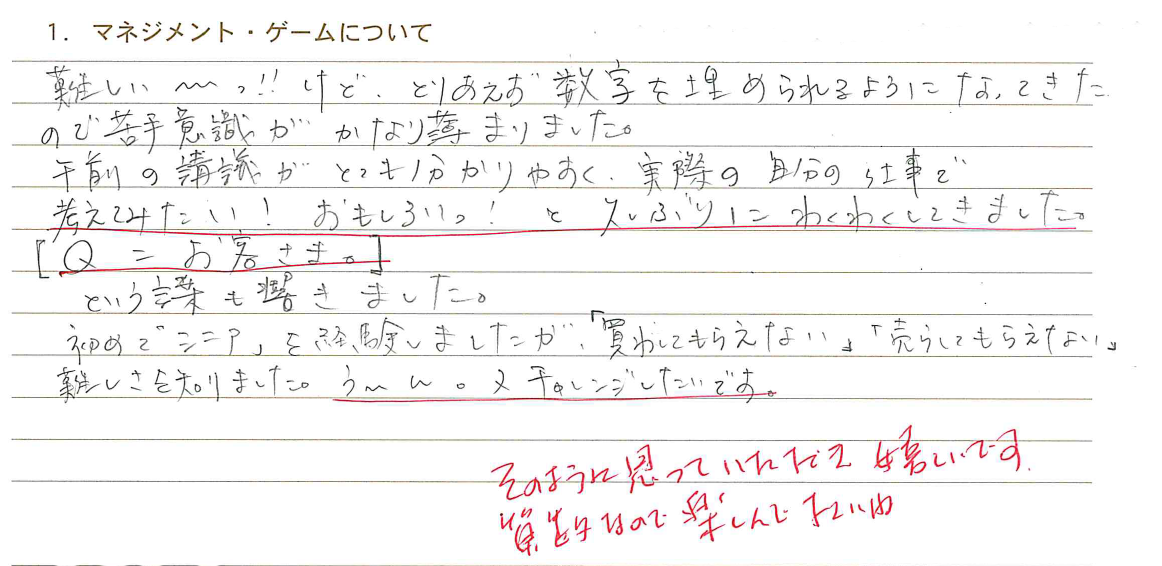 1. マネジメント・ゲームについて
難しい〜〜っ!! けど、とりあえず数字を埋められるようになってきた
ので苦手意識が かなり薄まりました。
午前の講議が とても分かりやすく、実際の自分の仕事で
考えてみたい! おもしろいっ! と 久しぶりに わくわくしてきました。
[Q = お客さま。]
という言葉も響きました。
初めて「シニア」を経験しましたが、「買わしてもらえない」「売らしてもらえない」
難しさを知りました。う〜ん。又チャレンジしたいです。
そのように思っていただて嬉しいです。
算数なので楽しんで